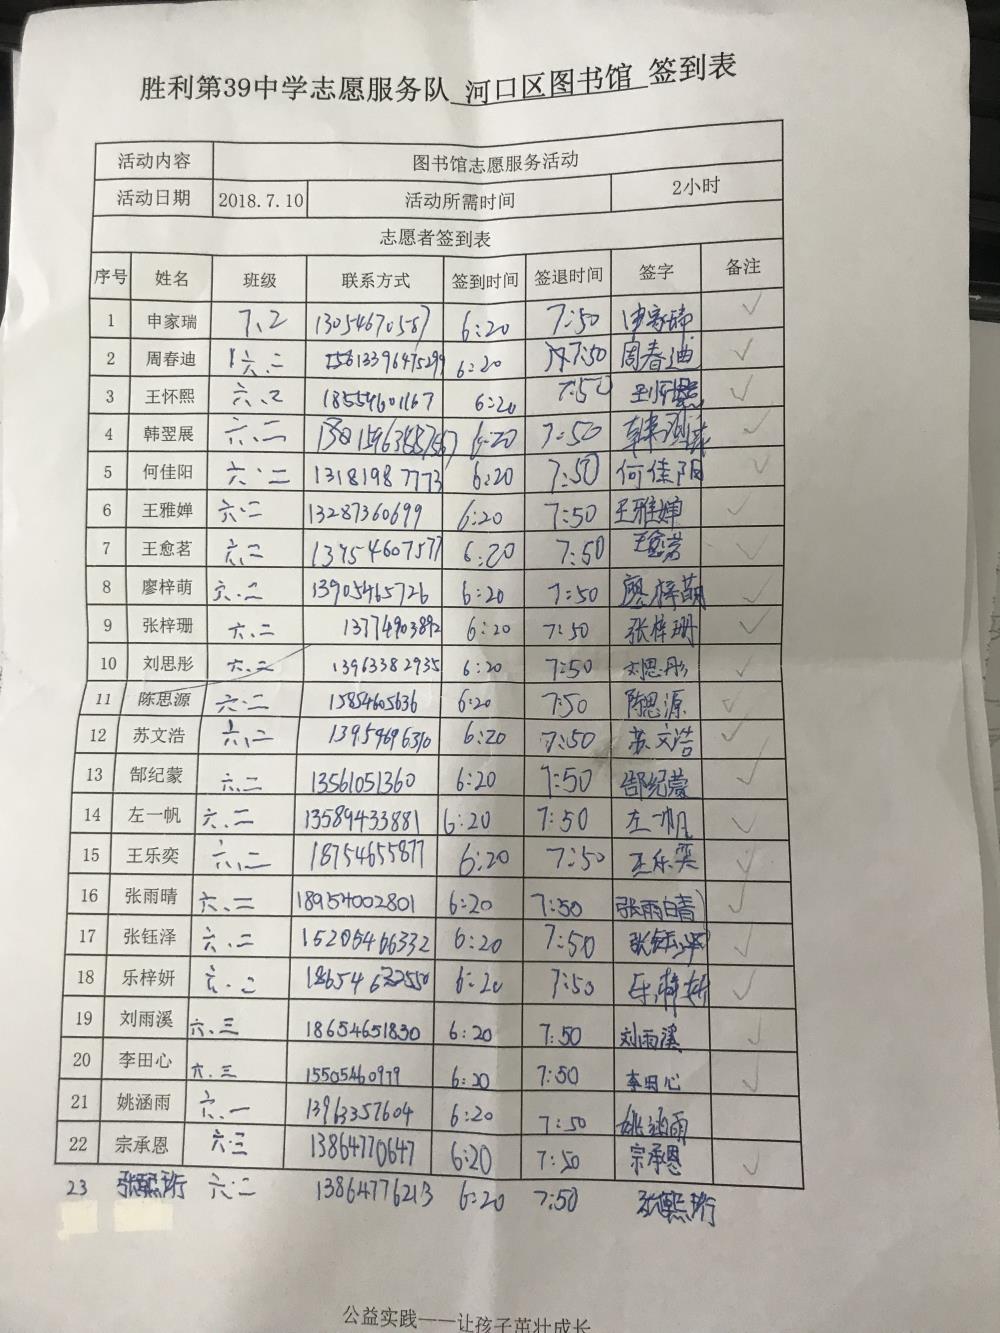 胜利第39中学志愿服务队 河口区图书馆 签到表
活动内容 图书馆志愿服务活动
活动日期 2018.7.10 活动所需时间 2小时
志愿者签到表
序号 姓名 班级 联系方式 签到时间 签退时间 签字 备注
1 申家瑞 7、2 13054670587 6:20 7:50 申家瑞 ✓
2 周春迪 六、二 6:20 7:50 周春迪 ✓
3 王怀熙 六、二 18554601167 6:20 7:50 王怀熙 ✓
4 韩翌展 六、二 6:20 7:50 ✓
5 何佳阳 六、二 13181987773 6:20 7:50 何佳阳 ✓
6 王雅婵 六、二 13287360699 6:20 7:50 王雅婵 ✓
7 王愈茗 六、二 13954607577 6:20 7:50 王愈茗 ✓
8 廖梓萌 六、二 13905465726 6:20 7:50 廖梓萌 ✓
9 张梓珊 六、二 13774903892 6:20 7:50 张梓珊 ✓
10 刘思彤 六、二 13963382935 6:20 7:50 刘思彤 ✓
11 陈思源 六、二 15854605636 6:20 7:50 陈思源 ✓
12 苏文浩 六、二 13954696310 6:20 7:50 苏文浩 ✓
13 郜纪蒙 六、二 13561051360 6:20 7:50 郜纪蒙 ✓
14 左一帆 六、二 13589433881 6:20 7:50 左一帆 ✓
15 王乐奕 六、二 18754655877 6:20 7:50 王乐奕 ✓
16 张雨晴 六、二 18954002801 6:20 7:50 张雨晴 ✓
17 张钰泽 六、二 15205466332 6:20 7:50 张钰泽 ✓
18 乐梓妍 六、二 6:20 7:50 乐梓妍 ✓
19 刘雨溪 六、三 18654651830 6:20 7:50 刘雨溪 ✓
20 李田心 六、三 15505460979 6:20 7:50 李田心 ✓
21 姚涵雨 六、一 13963357604 6:20 7:50 姚涵雨
22 宗承恩 六·三 13864770647 6:20 7:50 宗承恩 ✓
23 张熙珩 六·二 13864776213 6:20 7:50 张熙珩
公益实践——让孩子茁壮成长